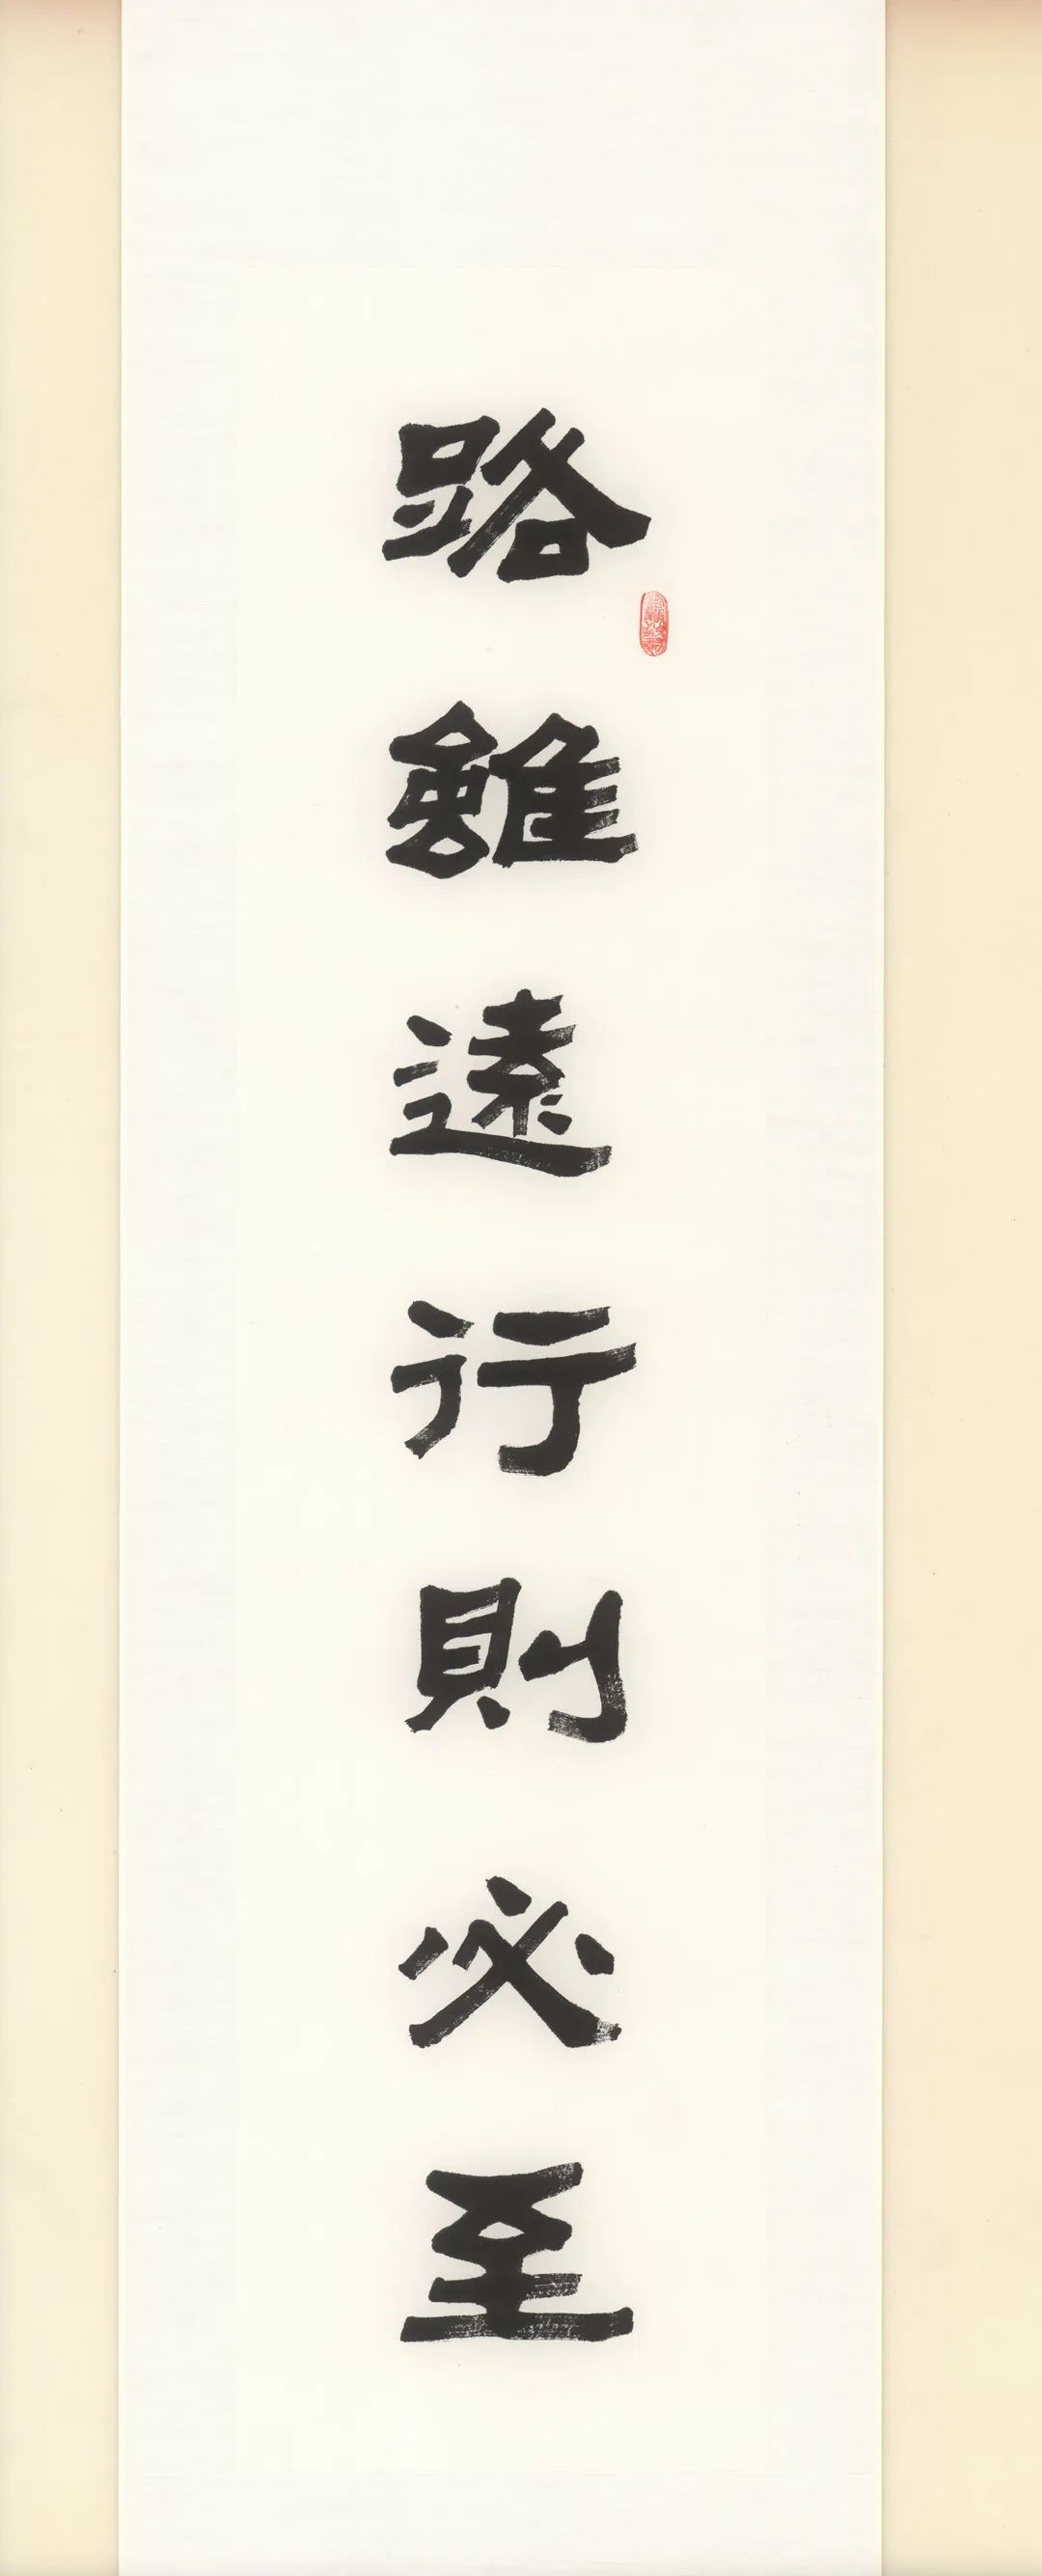 路雖遠行則必至